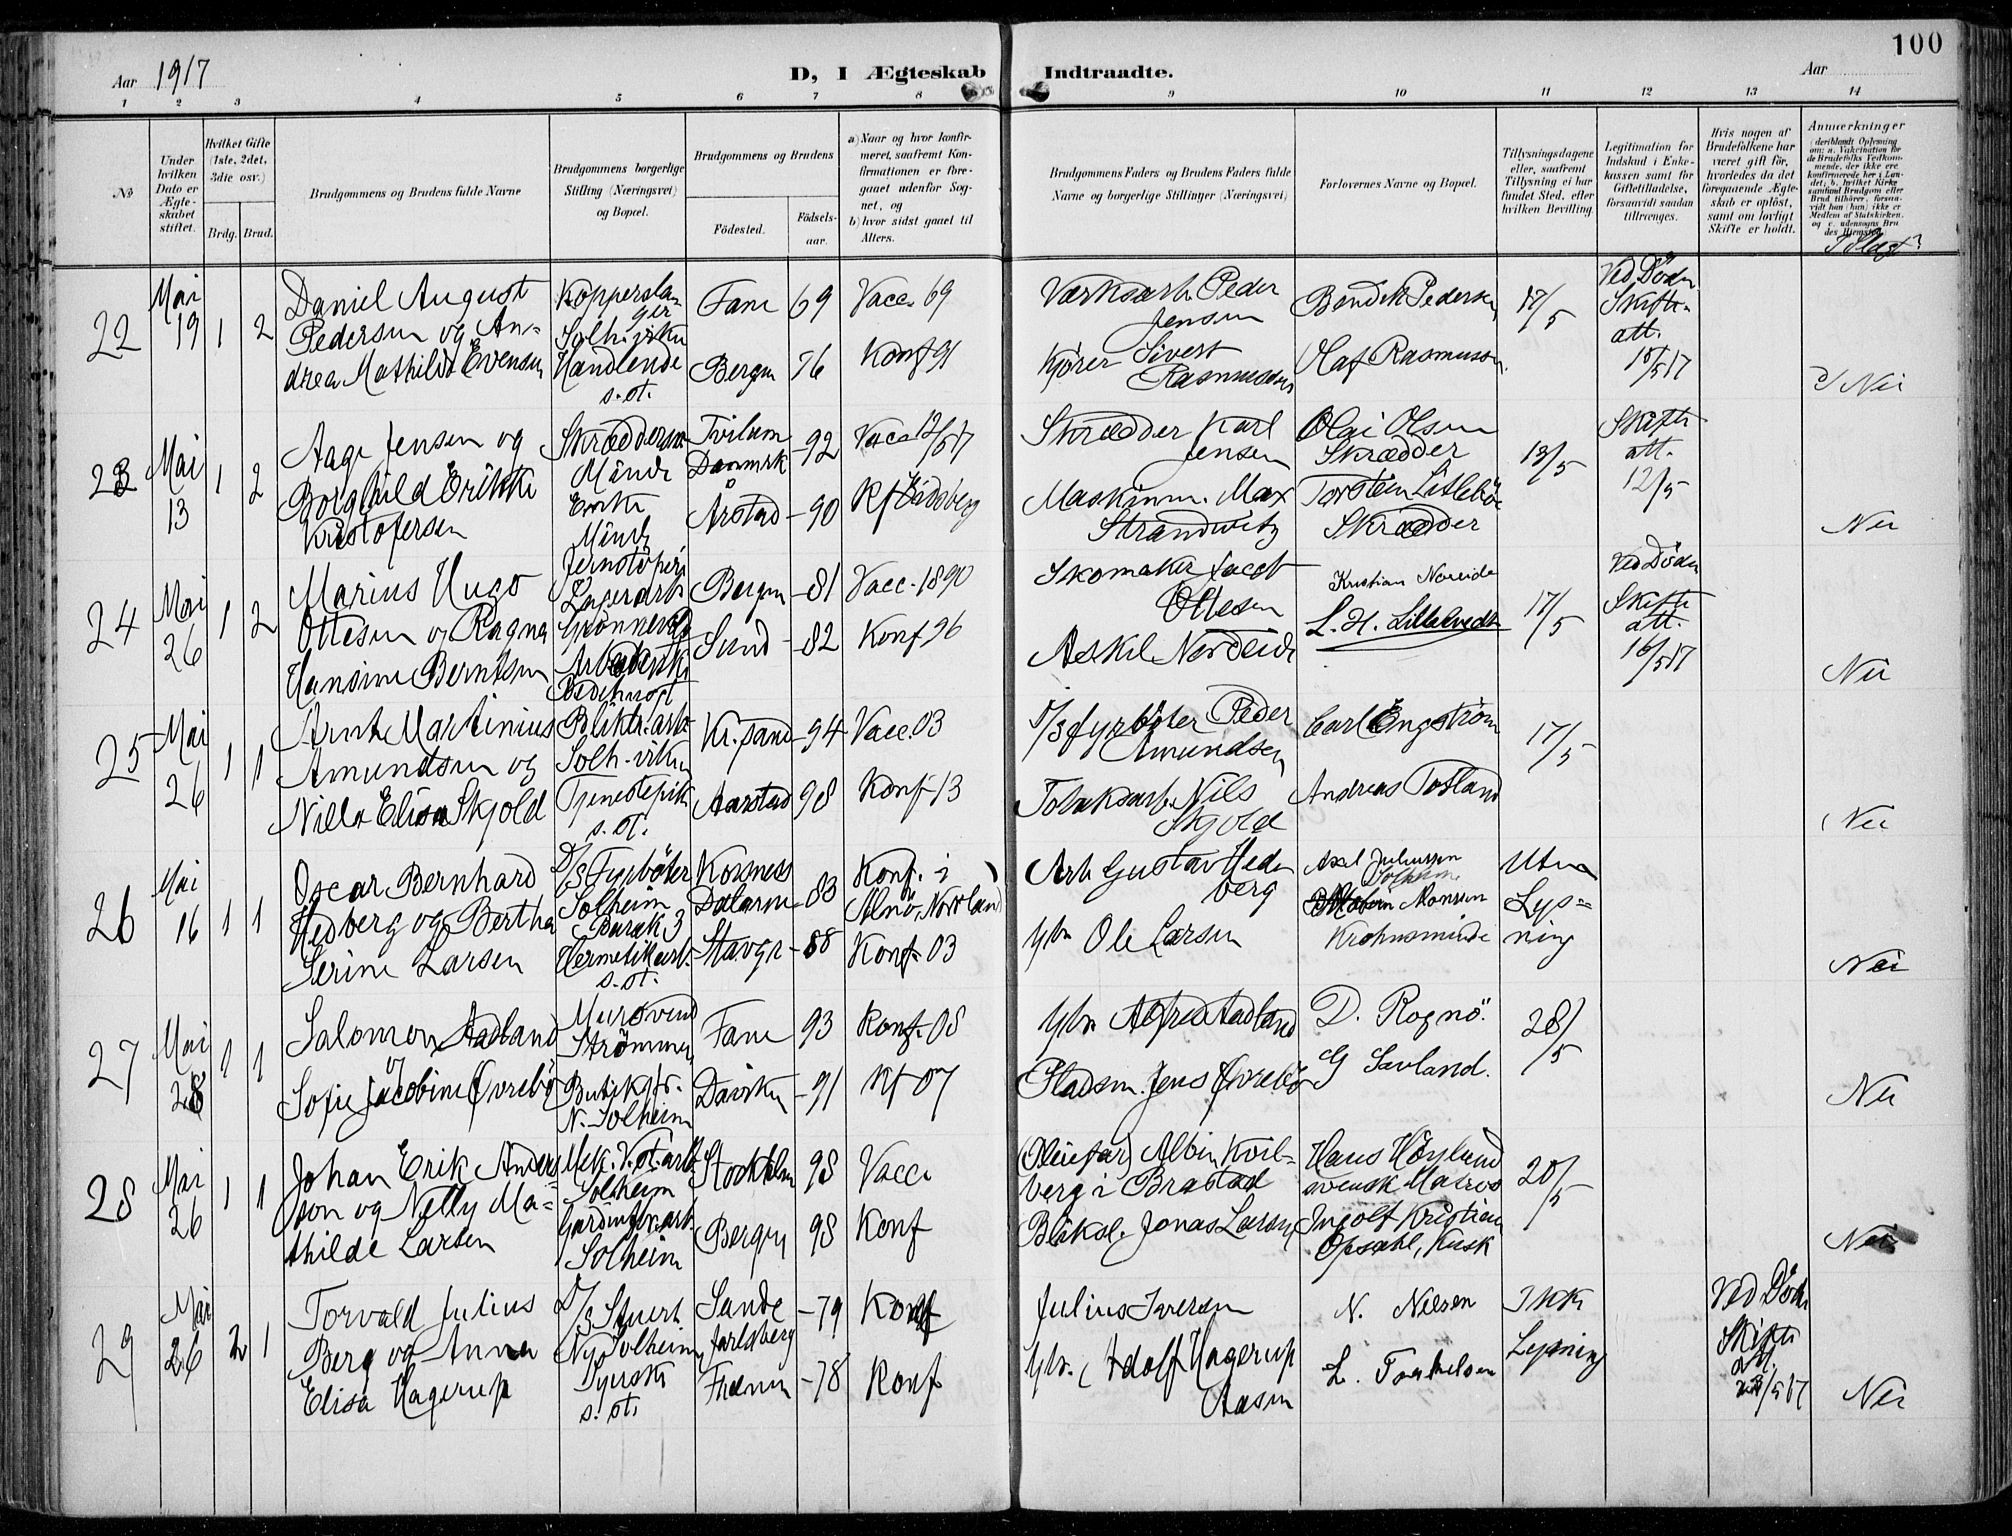 100
Aar 1917
D, I Ægteskab Indtraadte.
Aar
1 2 3 4 5 6 7 8 9 10 11 12 13 14
No
Under hvilken Dato er Ægteskabet stiftet.
Hvilket Gifte (1ste, 2det, 3die osv.)
Brdg. Brud.
Brudgommens og Brudens fulde Navne
Brudgommens borgerlige Stilling (Næringsvei) og Bopæl.
Brudgommens og Brudens
Fødested.
Fødselsaar.
a) Naar og hvor konfirmeret, saafremt Konfirmationen er foregaaet udenfor Sognet, og
b) hvor sidst gaaet til Alters.
Brudgommens Faders og Brudens Faders fulde Navne og borgerlige Stillinger (Næringsvei)
Forlovernes Navne og Bopæl.
Tillysningsdagene eller, saafremt Tillysning ei har fundet Sted, efter hvilken Bevilling.
Legitimation for Indskud i Enkekassen samt for Giftetilladelse, forsaavidt saadan tiltrænges.
Hvis nogen af Brudefolkene har været gift før, hvorledes da det foregaaende Ægteskab er opløst, samt om lovligt Skifte er holdt.
Anmærkninger
I Slegt?
22 Mai 19 1 2
Daniel August
Pedersen og An=
drea Mathilde Evensen
Kopperslager
Handlende
s. st.
Fane 69 Vacc. 69
Bergen 76 Konf 91
Værksarb. Peder
Jensen
Kjører Sivert
Rasmussen
Bendik Pedersen
Olaf Rasmussen
17/5
Ved Döden
Skifte
att.
15/5 17
Nei
23 Mai 13 1 2
Aage Jensen og
Borghild Erikke
Kristofersen
Minde
Enke
Minde
Danmrk 92 Vacc 12/5 17
Årstad 90
Skrædder Karl
Jensen
Maskinm. Max
Strandwitz
Olai Olsen
Skrædder
Torstein Littlebö
Skrædder
13/5
Skifte
att.
12/5
Nei
24 Mai 26 1 2
Marius Hugo
Ottesen og Ragna
Hansine Berntsen
Bergen 81 Vacc. 1890
Sund 82 Konf 96
Skomaker Jacob
Ottesen
Askel Nordeide
Kristian Noreide
17/5
Ved Döden
Skifte
att.
16/5 17
Nei
25 Mai 26 1 1
Arnt Martinius
Amundsen og
Nilla Elisa Skjold
Solh.viken
Tjenestepik
s. st.
Kr.sand 94 Vacc. 03
Aarstad 98 Konf 13
D/S fyrböter Peder
Amundsen
Nils
Skjold
Carl Engström
Andreas Totland
17/5
Nei
26 Mai 16 1 1
Oscar Bernhard
Hedberg og Bertha
Serine Larsen
D/S Fyrböter
Solheim
Barak 3
Hermetikarb.
s. st.
Dalarne 83 Konf. i
Alnö, Norrland
Stavgr 88 Konf 03
Arb. Gustav Hed
berg
Ole Larsen
Axel Juliussen
Solheim
Monsen
Krohnsminde
Uten
Lys=
ning
Nei
27 Mai 28 1 1
Salomon Aadland
og
Sofie Jacobine Övrebö
Murosvend
Strömmen
N. Solheim
Fane 93 Konf. 08
Daviken 91 Kf 07
Alfred Aadland
Pladsm. Jens Övrebö
D. Rognö.
G Savland.
28/5
Nei
28 Mai 26 1 1
Johan Erik Anders
son og Nelly Ma=
thilde Larsen
Mek. V.st. arb.
Solheim
Solheim
Stockholm 98 Vacc.
Bergen 98 Konf
Albin Kvil=
berg i Brastad
Bliksl. Jonas Larsen
Hans Höylund
svensk Matros
Ingolf Kristian
Opsahl, Kusk
20/5
Nei
29 Mai 26 2 1
Torvald Julius
Berg og Anna
Elisa Hagerup
D/S Stuert
Ny Solheim
Tyeske
s. st.
Sande
Jarlsberg 79 Konf
78 Konf
Julius Iversen
Adolf Hagerup
Aasen
N. Nilsen
L. Torkelsen
Ikke
Lysning
Ved Döde
Skifte
att.
/5 17
Nei